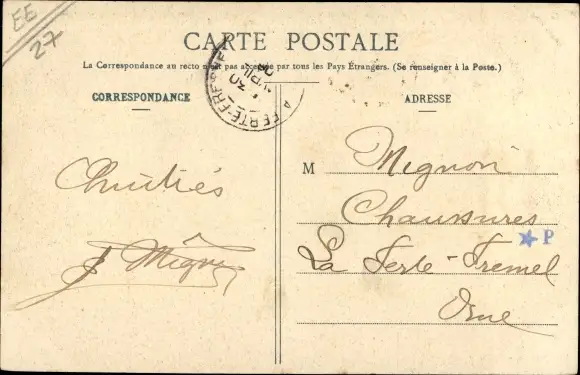 EE
27
CARTE POSTALE
La Correspondance au recto n'est pas acceptée par tous les Pays Étrangers. (Se renseigner à la Poste.)
CORRESPONDANCE
ADRESSE
LA FERTE-FRESNEL
Amitiés
M Mignon
Chaussures
P
La Ferté-Fresnel
Orne